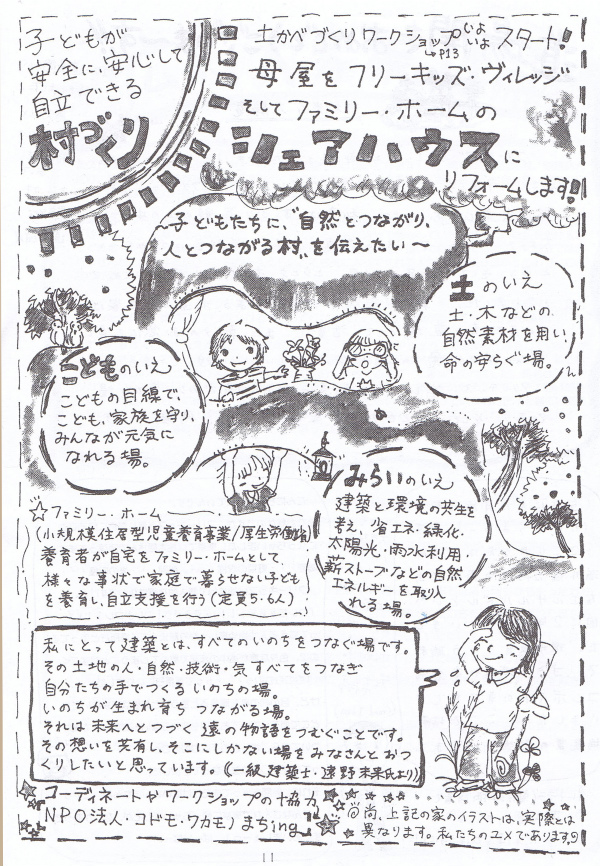 子どもが
安全に、安心して
自立できる
村づくり
土かべづくりワークショップいよいよスタート!
→P13
母屋をフリーキッズ・ヴィレッジ
そしてファミリー・ホームの
シェアハウスに
リフォームします!
～子どもたちに、“自然とつながり、
人とつながる村”を伝えたい～
土のいえ
土・木などの
自然素材を用い
命の安らぐ場。
こどものいえ
こどもの目線で、
こども、家族を守り、
みんなが元気に
なれる場。
みらいのいえ
建築と環境の共生を
考え、省エネ・緑化・
太陽光・雨水利用・
薪ストーブなどの自然
エネルギーを取り入
れる場。
☆ファミリー・ホーム
(小規模住居型児童養育事業/厚生労働省)
養育者が自宅をファミリー・ホームとして、
様々な事状で家庭で暮らせない子ども
を養育し、自立支援を行う(定員5・6人)
私にとって建築とは、すべてのいのちをつなぐ場です。
その土地の人・自然・技術・気すべてをつなぎ
自分たちの手でつくるいのちの場。
いのちが生まれ育ちつながる場。
それは未来へとつづく遠の物語をつむぐことです。
その想いを共有し、そこにしかない場をみなさんとおつ
くりしたいと思っています。(一級建築士・遠野未来氏より)
コーディネートやワークショップの協力
「NPO法人・コドモ・ワカモノまちing」
◎尚、上記の家のイラストは、実際とは
異なります。私たちのユメであります
11